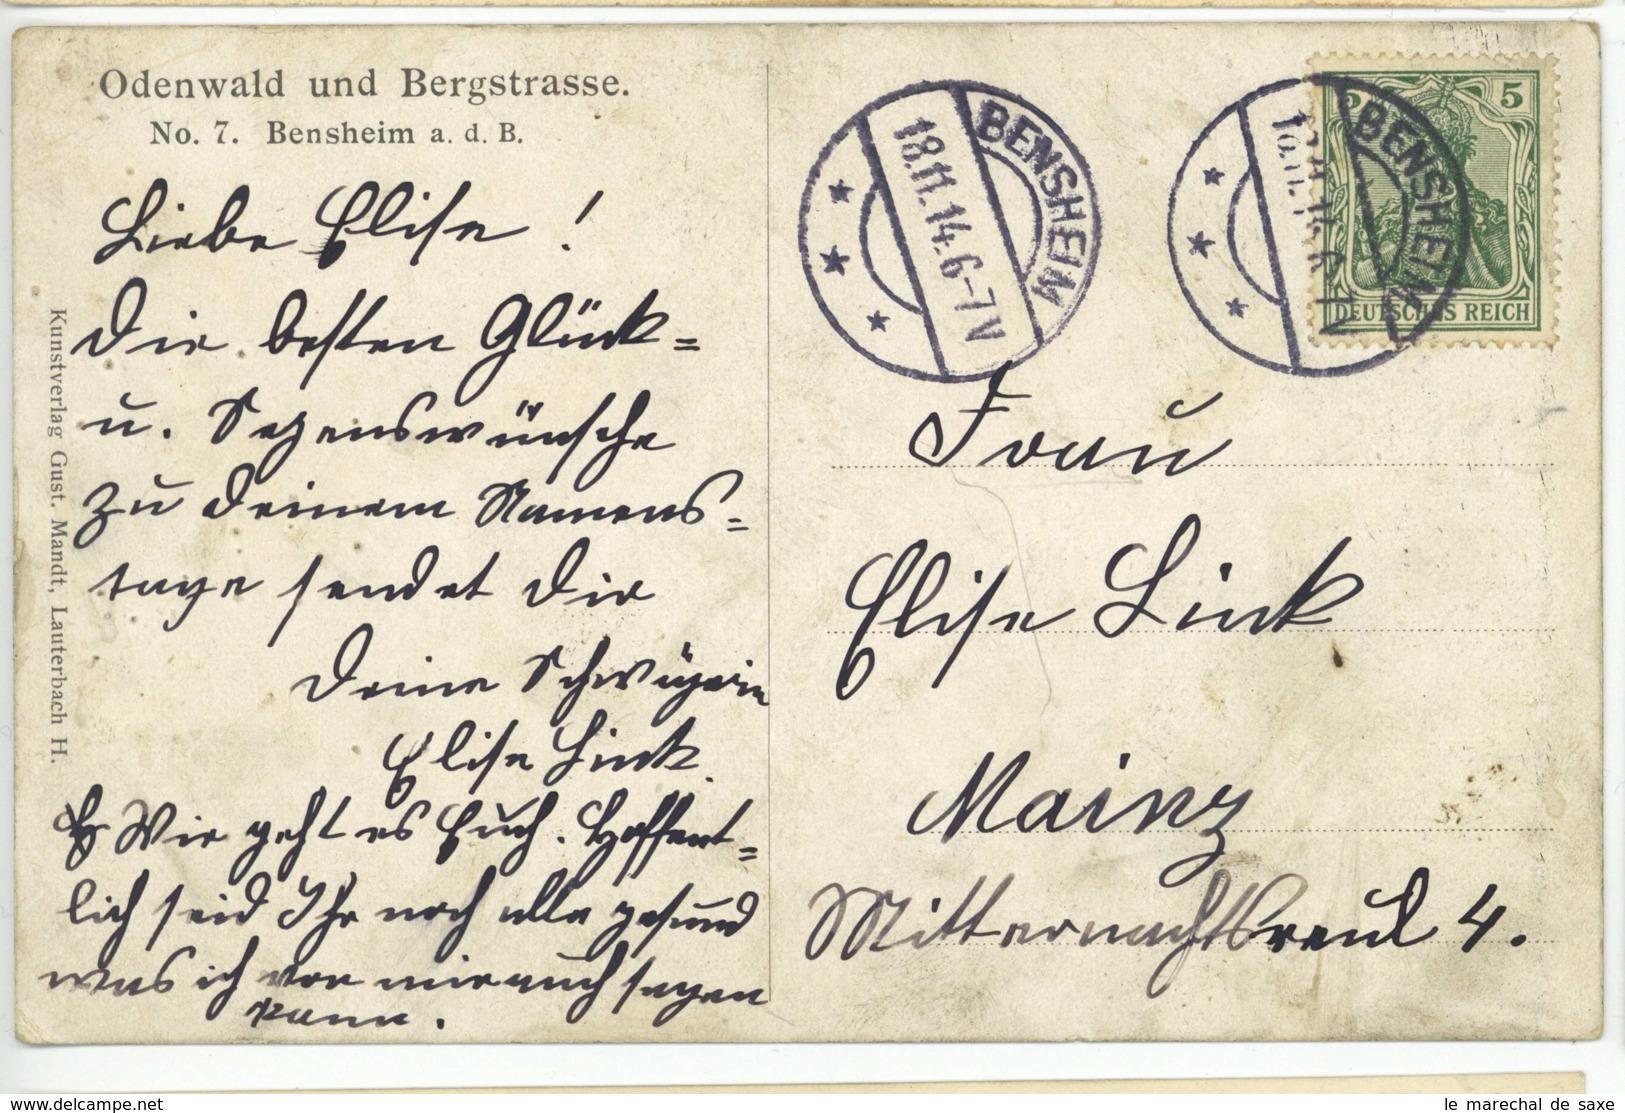 Odenwald und Bergstrasse.
No. 7. Bensheim a. d. B.
Liebe Elise!
Die besten Glück=
u. Segenswünsche
zu Deinem Namens=
tage sendet Dir
Deine Schwägerin
Elise Link.
Wie geht es Euch. Hoffent=
lich seid Ihr noch alle gesund
was ich von mir auch sagen
kann.
Kunstverlag Gust. Mandt, Lauterbach H.
BENSHEIM
18.11.14.6-7N
BENSHEIM
18.11.14.6-7N
5 5
DEUTSCHES REICH
Frau
Elise Link
Mainz
Mitternachtsreul 4.
le marechal de saxe